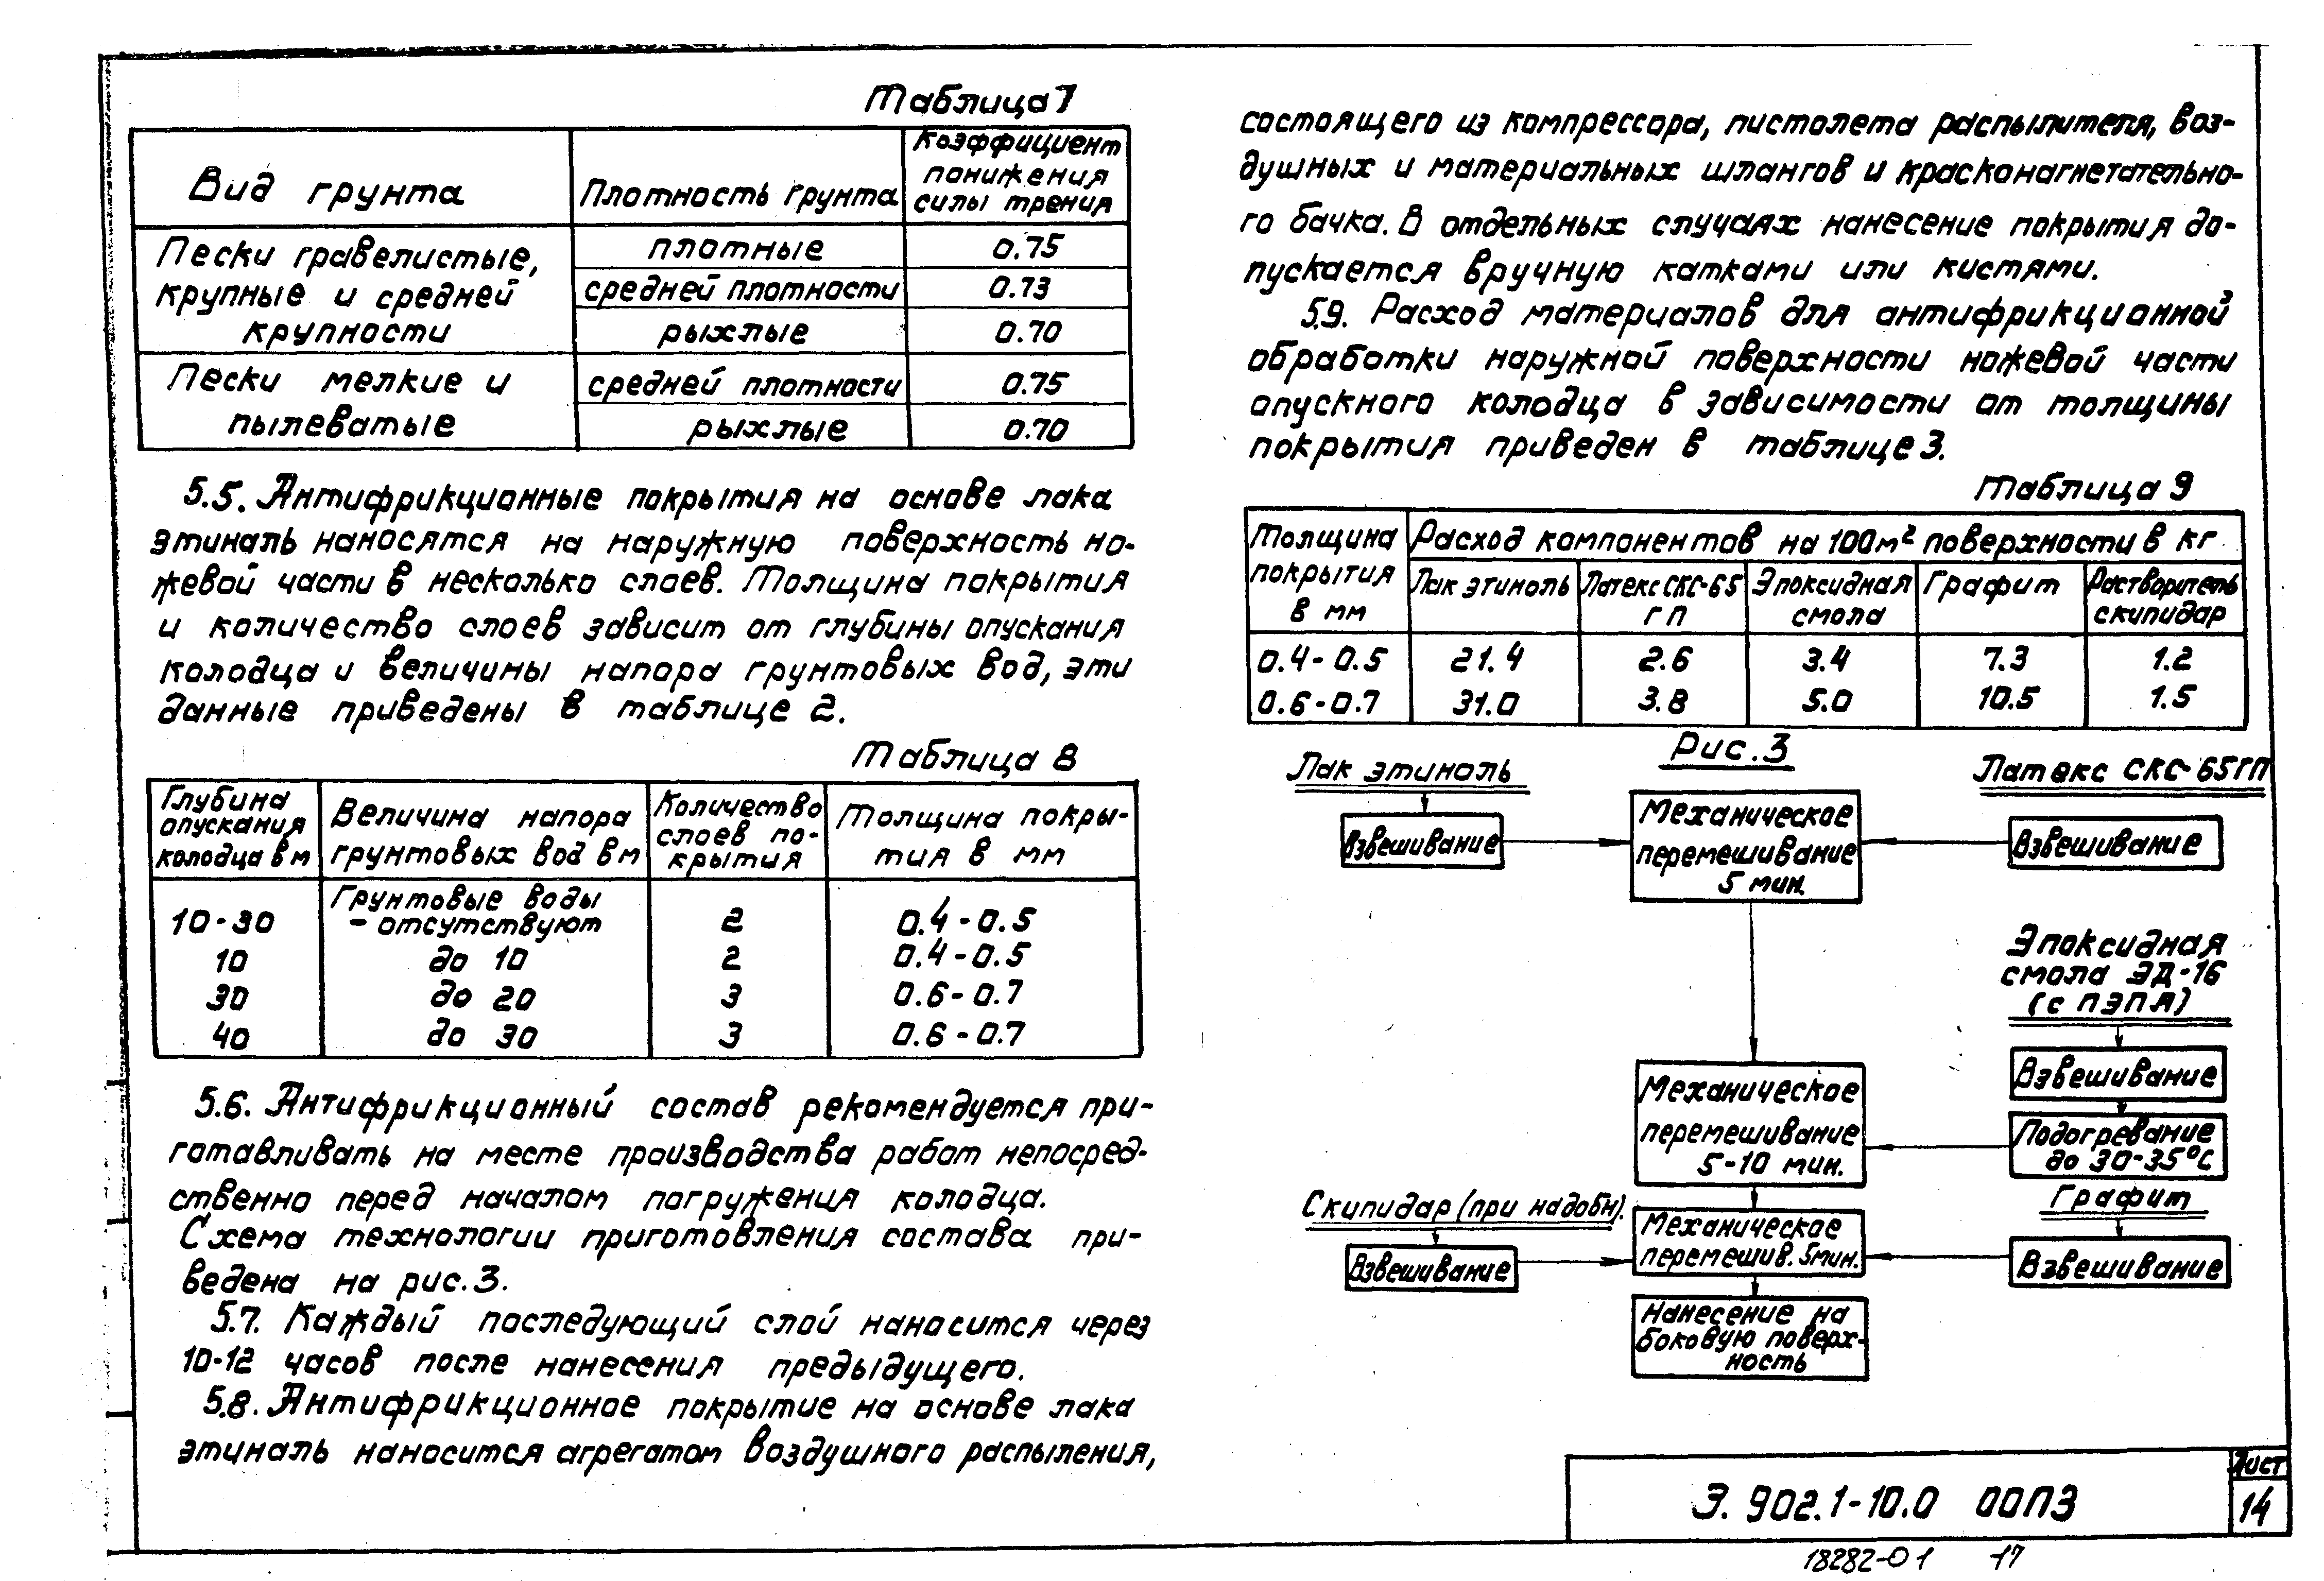 Таблица 7
Вид грунта
Плотность грунта
Коэффициент
понижения
силы трения
Пески гравелистые,
крупные и средней
крупности
плотные
0.75
средней плотности
0.73
рыхлые
0.70
Пески мелкие и
пылеватые
средней плотности
0.75
рыхлые
0.70
5.5. Антифрикционные покрытия на основе лака
этиналь наносятся на наружную поверхность но-
жевой части в несколько слоев. Толщина покрытия
и количество слоев зависит от глубины опускания
колодца и величины напора грунтовых вод, эти
данные приведены в таблице 2.
Таблица 8
Глубина
опускания
колодца в м
Величина напора
грунтовых вод в м
Количество
слоев по-
крытия
Толщина покры-
тия в мм
10-30
Грунтовые воды
- отсутствуют
2
0.4-0.5
10
до 10
2
0.4-0.5
30
до 20
3
0.6-0.7
40
до 30
3
0.6-0.7
5.6. Антифрикционный состав рекомендуется при-
готавливать на месте производства работ непосред-
ственно перед началом погружения колодца.
Схема технологии приготовления состава при-
ведена на рис. 3.
5.7. Каждый последующий слой наносится через
10-12 часов после нанесения предыдущего.
5.8. Антифрикционное покрытие на основе лака
этиналь наносится агрегатом воздушного распыления,
состоящего из компрессора, пистолета распылителя, воз-
душных и материальных шлангов и красконагнетательно-
го бачка. В отдельных случаях нанесение покрытия до-
пускается вручную катками или кистями.
5.9. Расход материалов для антифрикционной
обработки наружной поверхности ножевой части
опускного колодца в зависимости от толщины
покрытия приведен в таблице 3.
Таблица 9
Толщина
покрытия
в мм
Расход компонентов на 100м² поверхности в кг
Лак этиноль
Латекс СКС-65
ГП
Эпоксидная
смола
Графит
Растворитель
скипидар
0.4-0.5
21.4
2.6
3.4
7.3
1.2
0.6-0.7
31.0
3.8
5.0
10.5
1.5
Рис. 3
Лак этиноль
Латекс СКС-65ГП
Взвешивание
Механическое
перемешивание
5 мин.
Взвешивание
Эпоксидная
смола ЭД-16
(с ПЭПА)
Взвешивание
Механическое
перемешивание
5-10 мин.
Подогревание
до 30-35°С
Скипидар (при надобн.)
Графит
Взвешивание
Механическое
перемешив. 5мин.
Взвешивание
Нанесение на
боковую поверх-
ность
3. 902.1-10.0 00ПЗ
Лист
14
18282-01 17